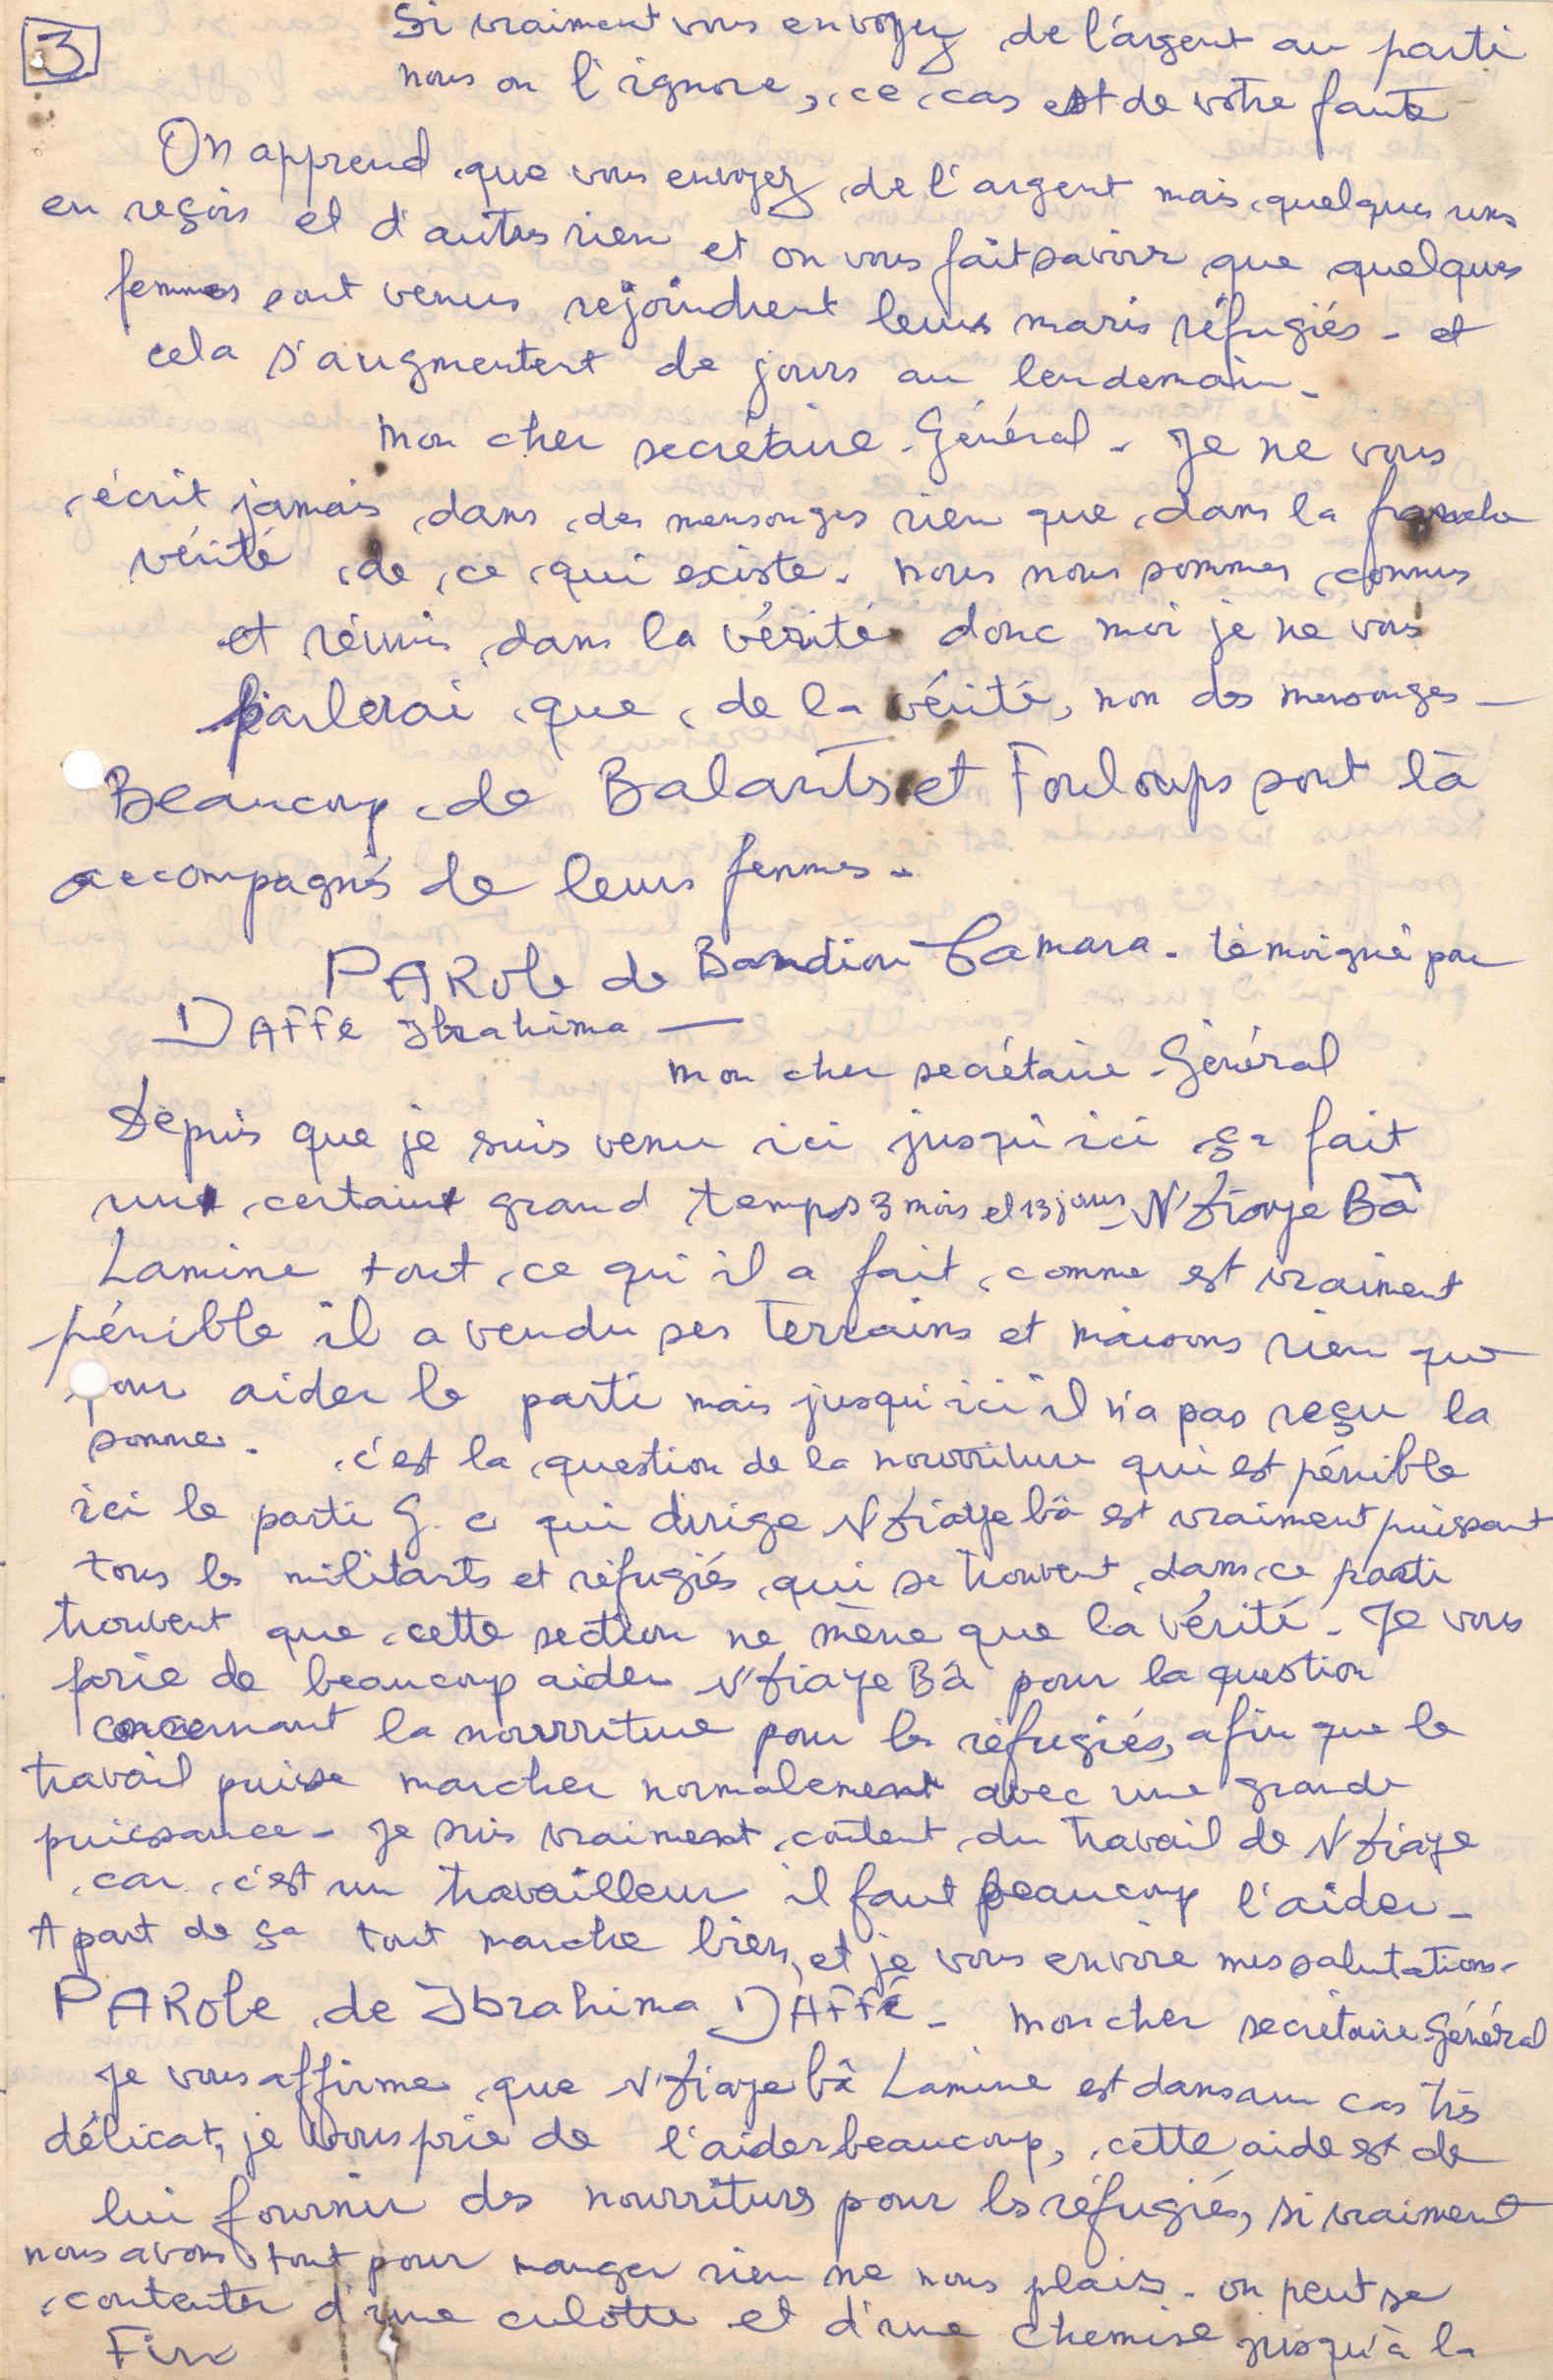 3
Si vraiment vous envoyez de l'argent au parti
nous on l'ignore, ce cas est de votre faute
On apprend que vous envoyez de l'argent mais quelques uns
en reçois et d'autres rien et on vous fait savoir que quelques
femmes sont venus rejoindrent leurs maris réfugiés - et
cela s'augmentent de jours au lendemain -
Mon cher secrétaire - Général - Je ne vous
écrit jamais dans des mensonges rien que dans la franche
vérité de ce qui existe - nous nous sommes connus
et réunis dans la vérité donc moi je ne vous
parlerai que de la vérité, non des mensonges -
Beaucoup de Balants et Fouloups sont là
accompagnés de leurs femmes -
PARole de Bandiou Camara - témoigné par
DAFFE Ibrahima -
Mon cher secrétaire - Général
Depuis que je suis venu ici jusqu'ici ça fait
une certaine grand temps 3 mois et 13 jours - N'Diaye Bâ
Lamine tout ce qu'il a fait comme est vraiment
pénible il a vendu ses terrains et maisons rien que
pour aider le parti mais jusqu'ici il n'a pas reçu la
somme - c'est la question de la nourriture qui est pénible
ici le parti G. c qui dirige N'Diaye bâ est vraiment puissant
tous les militants et réfugiés qui se trouvent dans ce parti
trouvent que cette section ne mène que la vérité - Je vous
prie de beaucoup aider N'Diaye Bâ pour la question
concernant la nourrriture pour les réfugiés, afin que le
travail puisse marcher normalement avec une grande
puissance - Je suis vraiment content du travail de N'Diaye
car c'est un travailleur il faut beaucoup l'aider -
A part de ça tout marche bien, et je vous envoie mes salutations -
PARole de Ibrahima DAFFÉ - Mon cher secrétaire Général
Je vous affirme que N'Diaye bâ Lamine est dans un cas très
délicat, je vous prie de l'aider beaucoup, cette aide est de
lui fournir des nourritures pour les réfugiés, si vraiment
nous avons tout pour manger rien ne nous plais - on peut se
contenter d'une culotte et d'une chemise jusqu'à la
Fin